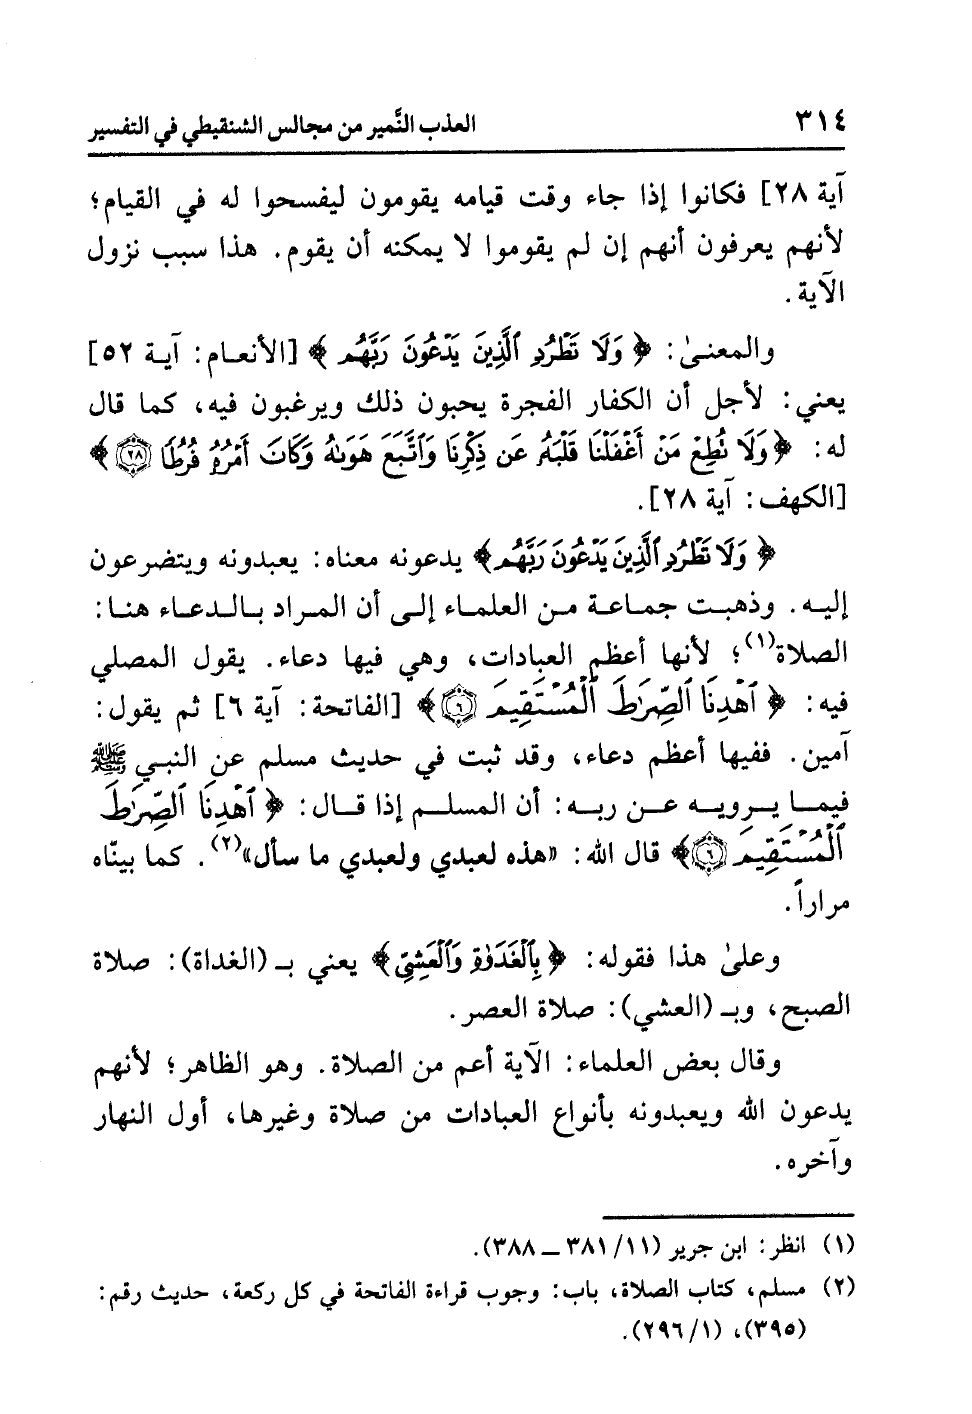 ٣١٤
العذب النَّمير من مجالس الشنقيطي في التفسير
آية ٢٨] فكانوا إذا جاء وقت قيامه يقومون ليفسحوا له في القيام؛
لأنهم يعرفون أنهم إن لم يقوموا لا يمكنه أن يقوم. هذا سبب نزول
الآية.
والمعنىٰ: ﴿ وَلَا تَطْرُدِ ٱلَّذِينَ يَدْعُونَ رَبَّهُم ﴾ [الأنعام: آية ٥٢]
يعني: لأجل أن الكفار الفجرة يحبون ذلك ويرغبون فيه، كما قال
له: ﴿ وَلَا تُطِعْ مَنْ أَغْفَلْنَا قَلْبَهُۥ عَن ذِكْرِنَا وَٱتَّبَعَ هَوَىٰهُ وَكَانَ أَمْرُهُۥ فُرُطًا ٢٨ ﴾
[الكهف: آية ٢٨].
﴿ وَلَا تَطْرُدِ ٱلَّذِينَ يَدْعُونَ رَبَّهُم ﴾ يدعونه معناه: يعبدونه ويتضرعون
إليه. وذهبت جماعة من العلماء إلى أن المراد بالدعاء هنا:
الصلاة(١)؛ لأنها أعظم العبادات، وهي فيها دعاء. يقول المصلي
فيه: ﴿ ٱهْدِنَا ٱلصِّرَٰطَ ٱلْمُسْتَقِيمَ ٦ ﴾ [الفاتحة: آية ٦] ثم يقول:
آمين. ففيها أعظم دعاء، وقد ثبت في حديث مسلم عن النبي ﷺ
فيما يرويه عن ربه: أن المسلم إذا قال: ﴿ ٱهْدِنَا ٱلصِّرَٰطَ
ٱلْمُسْتَقِيمَ ٦ ﴾ قال الله: «هذه لعبدي ولعبدي ما سأل»(٢). كما بينّاه
مراراً.
وعلىٰ هذا فقوله: ﴿ بِٱلْغَدَوٰةِ وَٱلْعَشِيِّ ﴾ يعني بـ (الغداة): صلاة
الصبح، وبـ (العشي): صلاة العصر.
وقال بعض العلماء: الآية أعم من الصلاة. وهو الظاهر؛ لأنهم
يدعون الله ويعبدونه بأنواع العبادات من صلاة وغيرها، أول النهار
وآخره.
(١) انظر: ابن جرير (١١/ ٣٨١ ــ ٣٨٨).
(٢) مسلم، كتاب الصلاة، باب: وجوب قراءة الفاتحة في كل ركعة، حديث رقم:
(٣٩٥)، (١/ ٢٩٦).